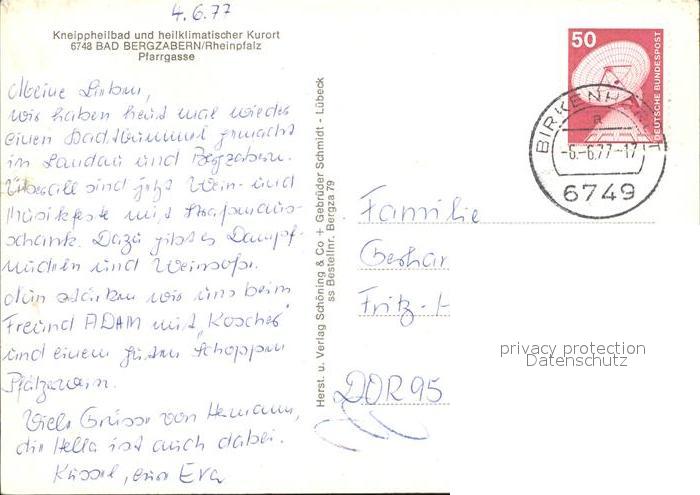 4.6.77
Kneippheilbad und heilklimatischer Kurort
6748 BAD BERGZABERN/Rheinpfalz
Pfarrgasse
Meine Lieben,
wir haben heut mal wieder
einen Stadtbummel gemacht
in Landau und Bergzabern.
Überall sind jetzt Wein- und
Musikfeste mit
schank. Dazu gibt es Dampf-
nudeln und Weinsoße.
Nun stärken wir uns beim
Freund ADAM mit "
und einem guten Schoppen
Pfälzerwein.
Viele Grüsse von Hermann,
die Hella ist auch dabei.
Küssel, eure Eva
Herst. u. Verlag Schöning & Co + Gebrüder Schmidt - Lübeck
ss Bestellnr. Bergza 79
50
DEUTSCHE BUNDESPOST
BIRKENH
a
-6.-6.77-17
6749
Familie
Gerhar
Fritz-H
DDR 95
privacy protection
Datenschutz